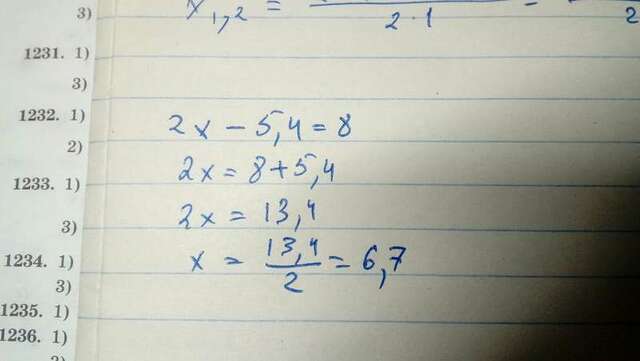 3)
1231. 1)
3)
1232. 1)
2)
1233. 1)
3)
1234. 1)
3)
1235. 1)
1236. 1)
x₁,₂ =
2·1
2
2x - 5,4 = 8
2x = 8 + 5,4
2x = 13,4
x = 13,4/2 = 6,7